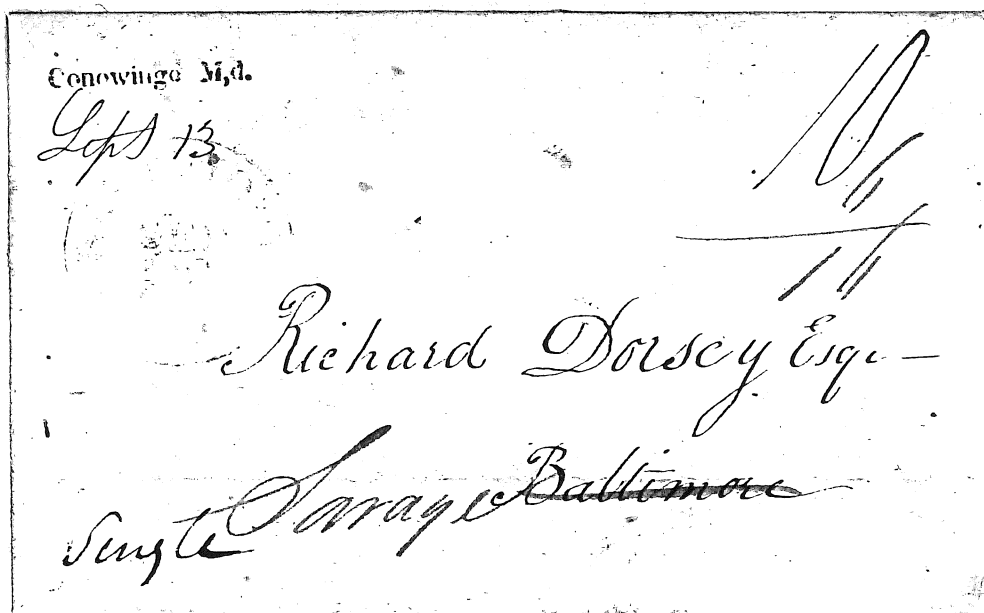 Conowingo M,d.
Sept 13
10
Richard Dorsey Esqr
Savage Baltimore
Single